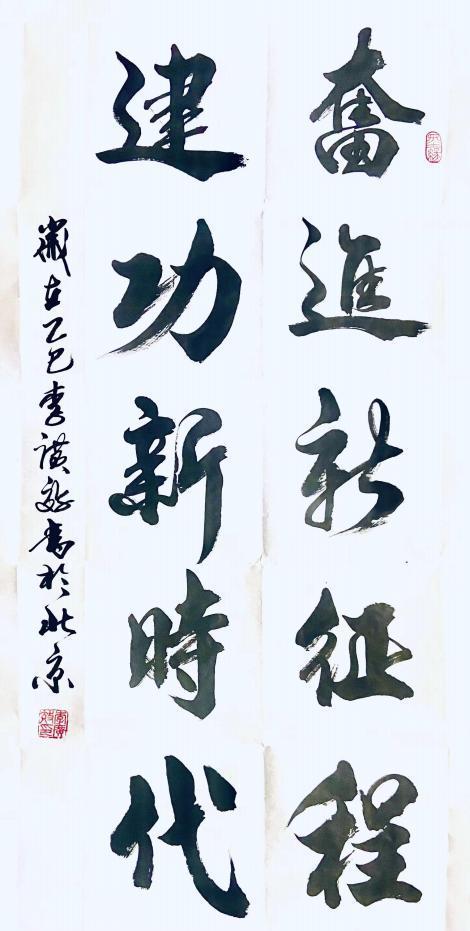 奮進新征程
建功新時代
歲在乙巳李
書於北京